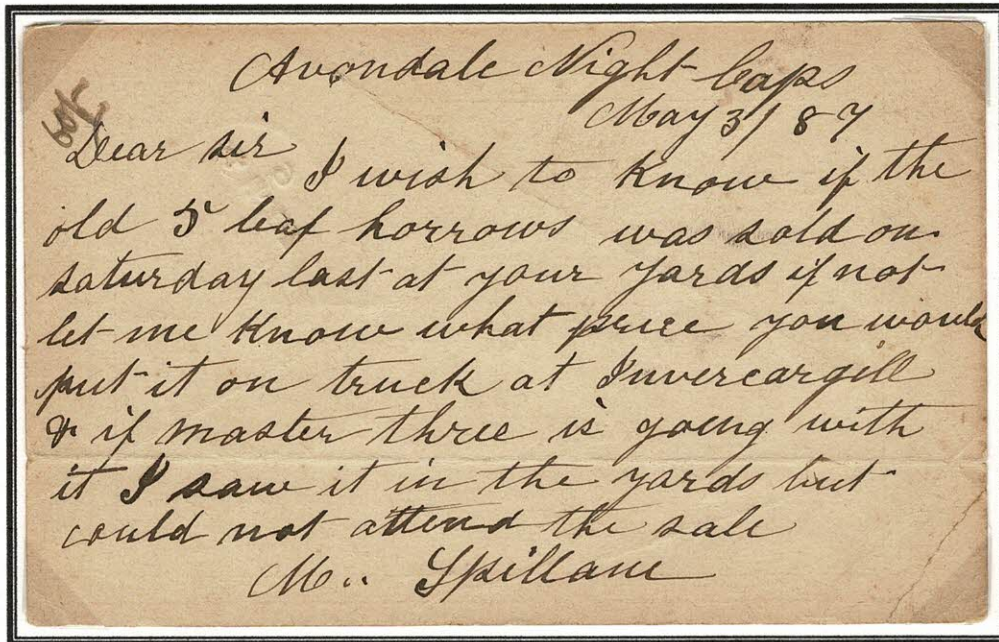 Avondale Night-Caps
May 3/87
Dear sir
I wish to know if the
old 5 leaf horrows was sold on
saturday last at your yards if not
let me know what price you would
put it on truck at Invercargill
& if master three is going with
it I saw it in the yards but
could not attend the sale
M.. Spillane